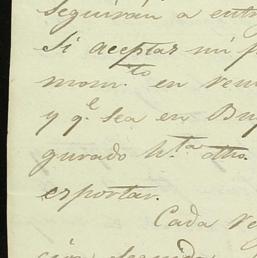 seguirán a entr
Si aceptas mi p
mom.to en rem
y q.e sea en Bu
gurado h.ta dho.
esportar.
Cada ve